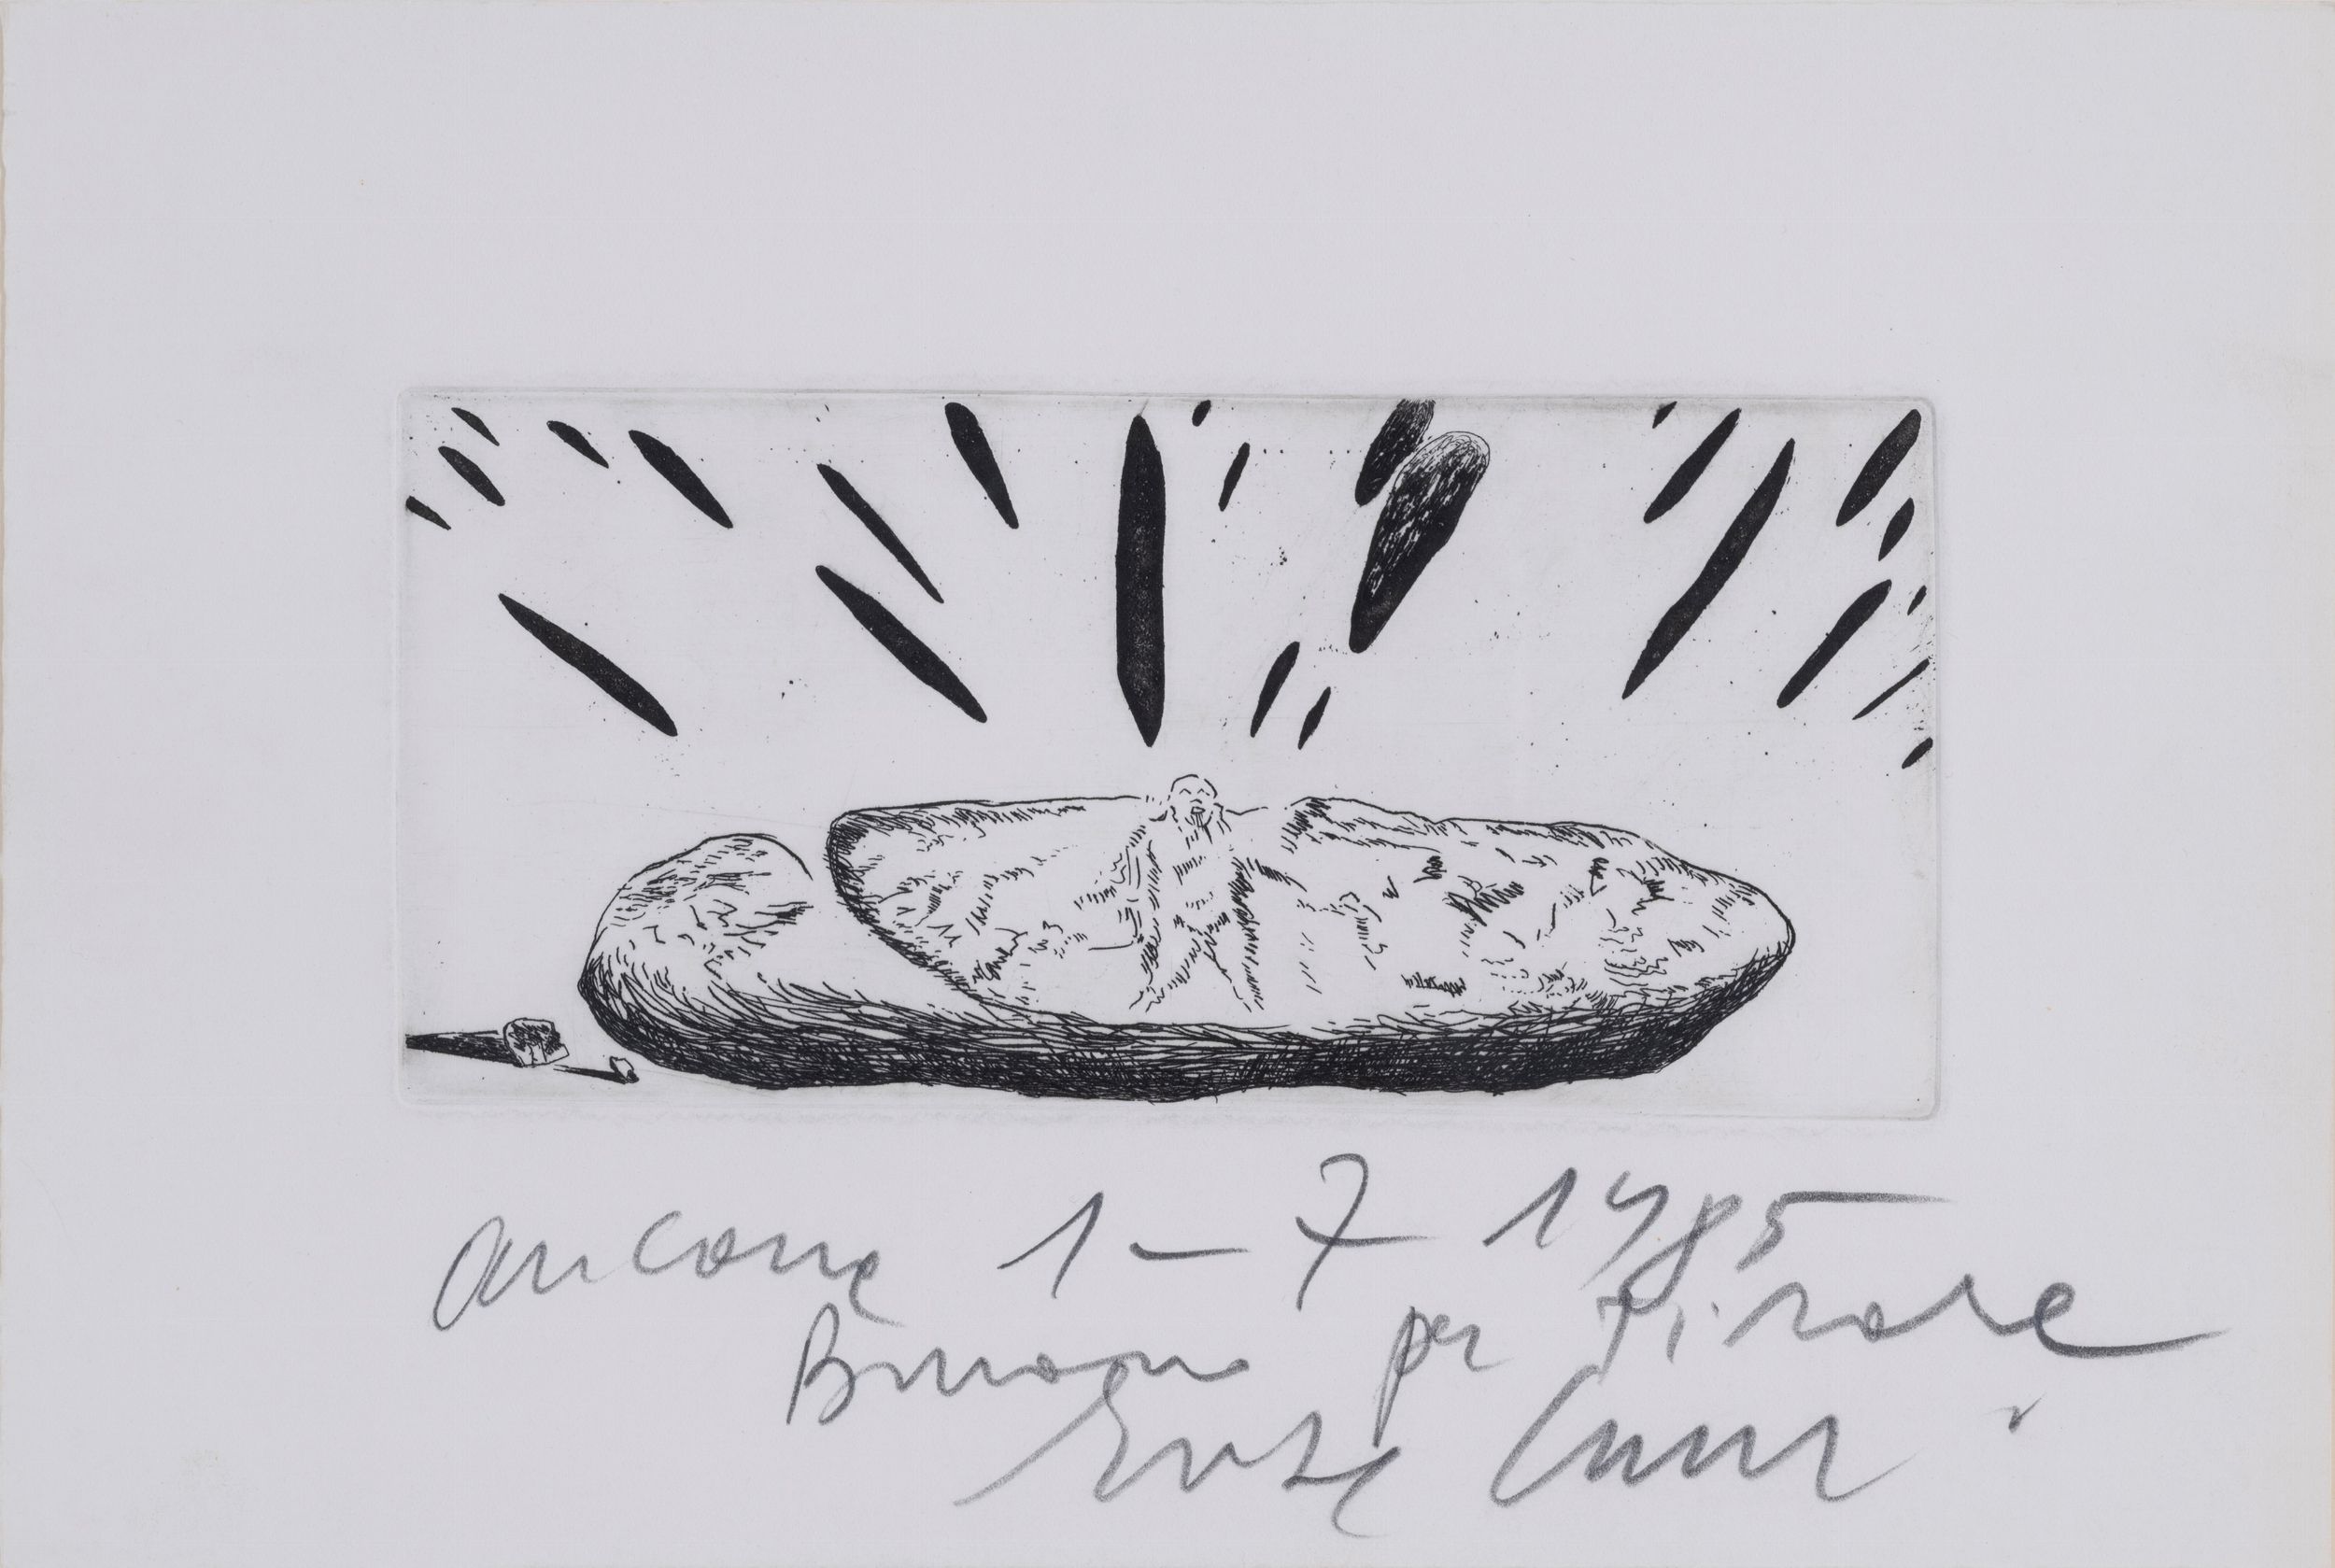 Ancona 1-7 1985
Buono per Tirare
Enzo Cucchi